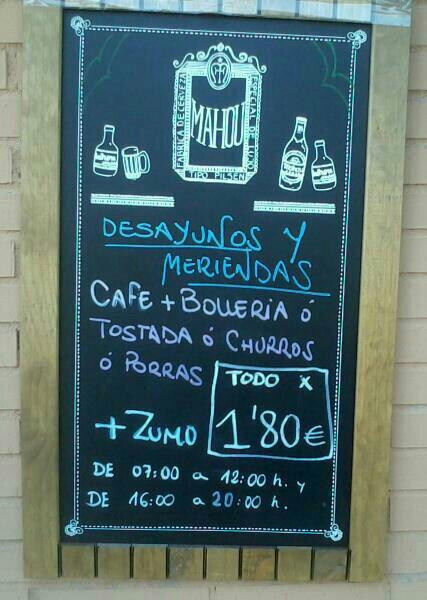 FABRICA DE CERVEZA
MAHOU
ESPECIAL DE LUJO
TIPO PILSEN
DESAYUNOS Y
MERIENDAS
CAFE + BOLLERIA ó
TOSTADA ó CHURROS
ó PORRAS
TODO X
+ ZUMO 1'80€
DE 07:00 a 12:00 h. y
DE 16:00 a 20:00 h.